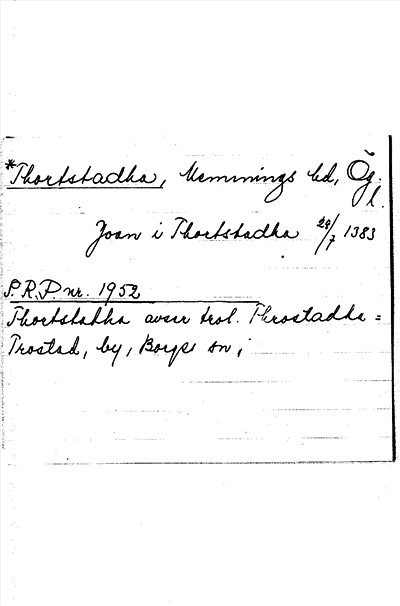 *Thortstadha, Memmings hd, Ög.
l.
Joan i Thortstadha 29/7 1383
S.R.P. nr. 1952
Thortstahha avser trol. Throstadha =
Trostad, by, Borgs sn,